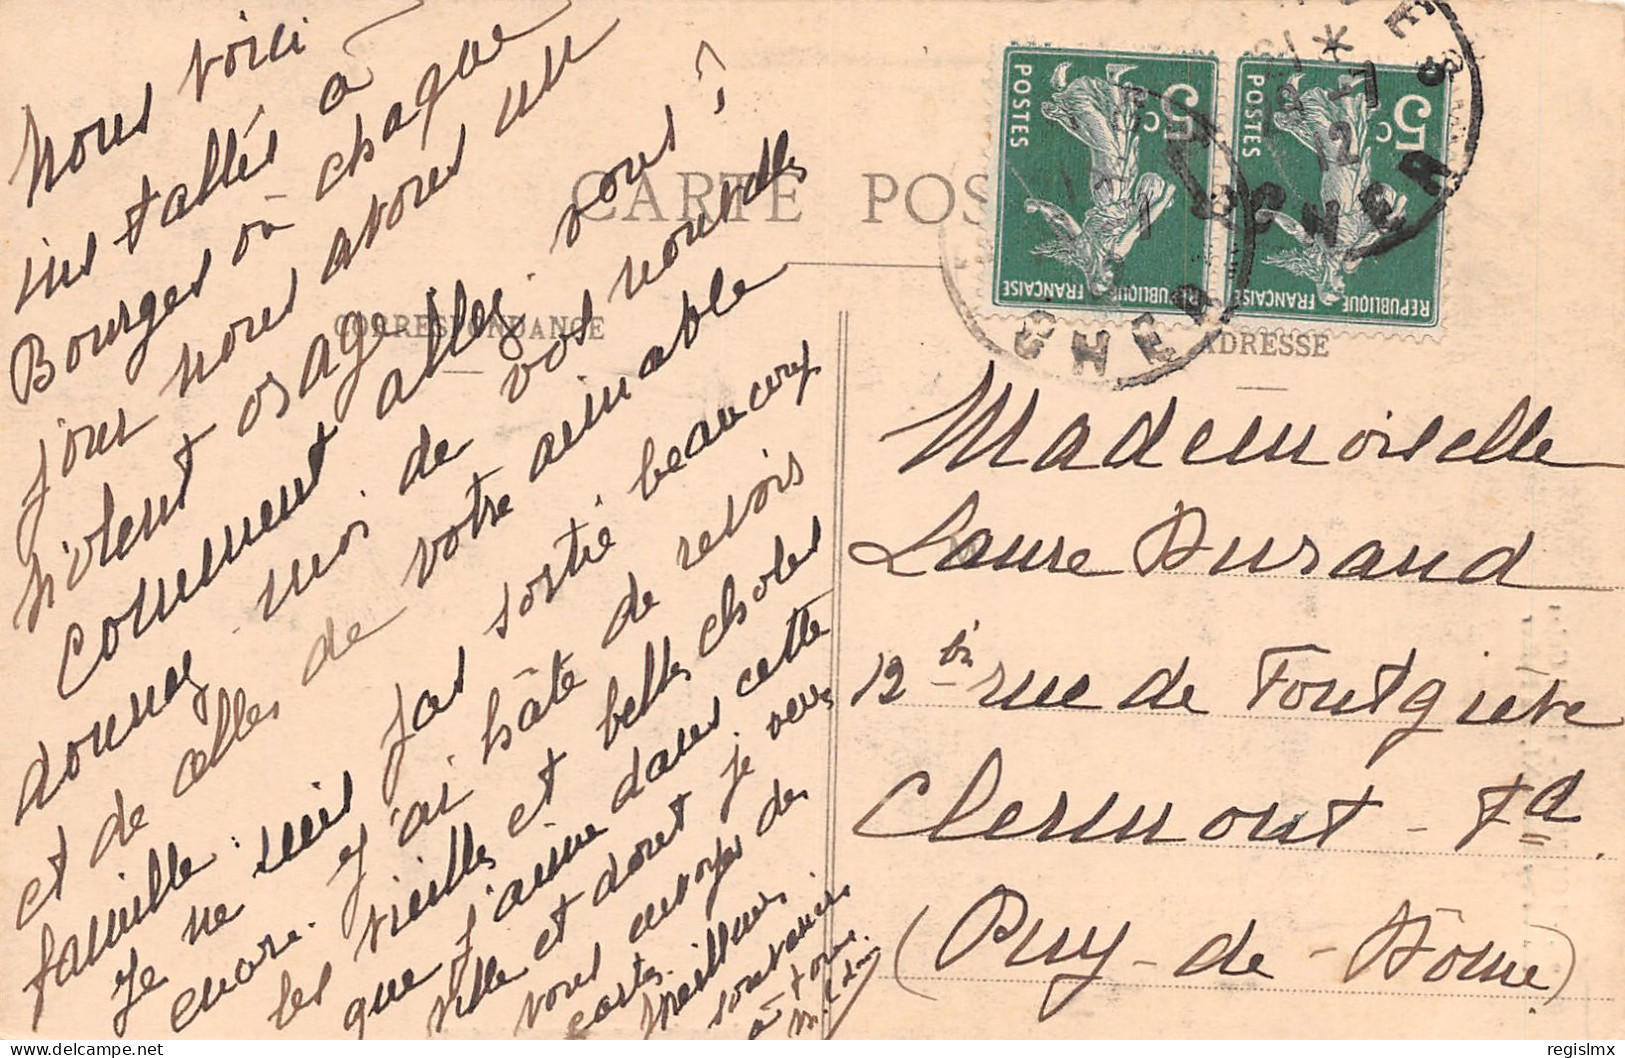 Nous voici
installés à
Bourges où chaque
jour nous avons un
violent orage.
Comment allez-vous ?
donnez-moi de vos nouvelles
et de celles de votre aimable
famille.
Je ne suis pas sortie beaucoup
encore. J'ai hâte de revoir
les vieilles et belles choses
que j'aime dans cette
ville et dont je veux
vous envoyer des
cartes.
Meilleurs
souvenirs
à tous
CARTE POS
CORRESPONDANCE
ADRESSE
POSTES
5c
REPUBLIQUE FRANÇAISE
POSTES
5c
REPUBLIQUE FRANÇAISE
CHER
CHER
Mademoiselle
Laure Durand
12 bis rue de Fontgiève
Clermont-Fd
(Puy-de-Dôme)
delcampe.net
regisImx